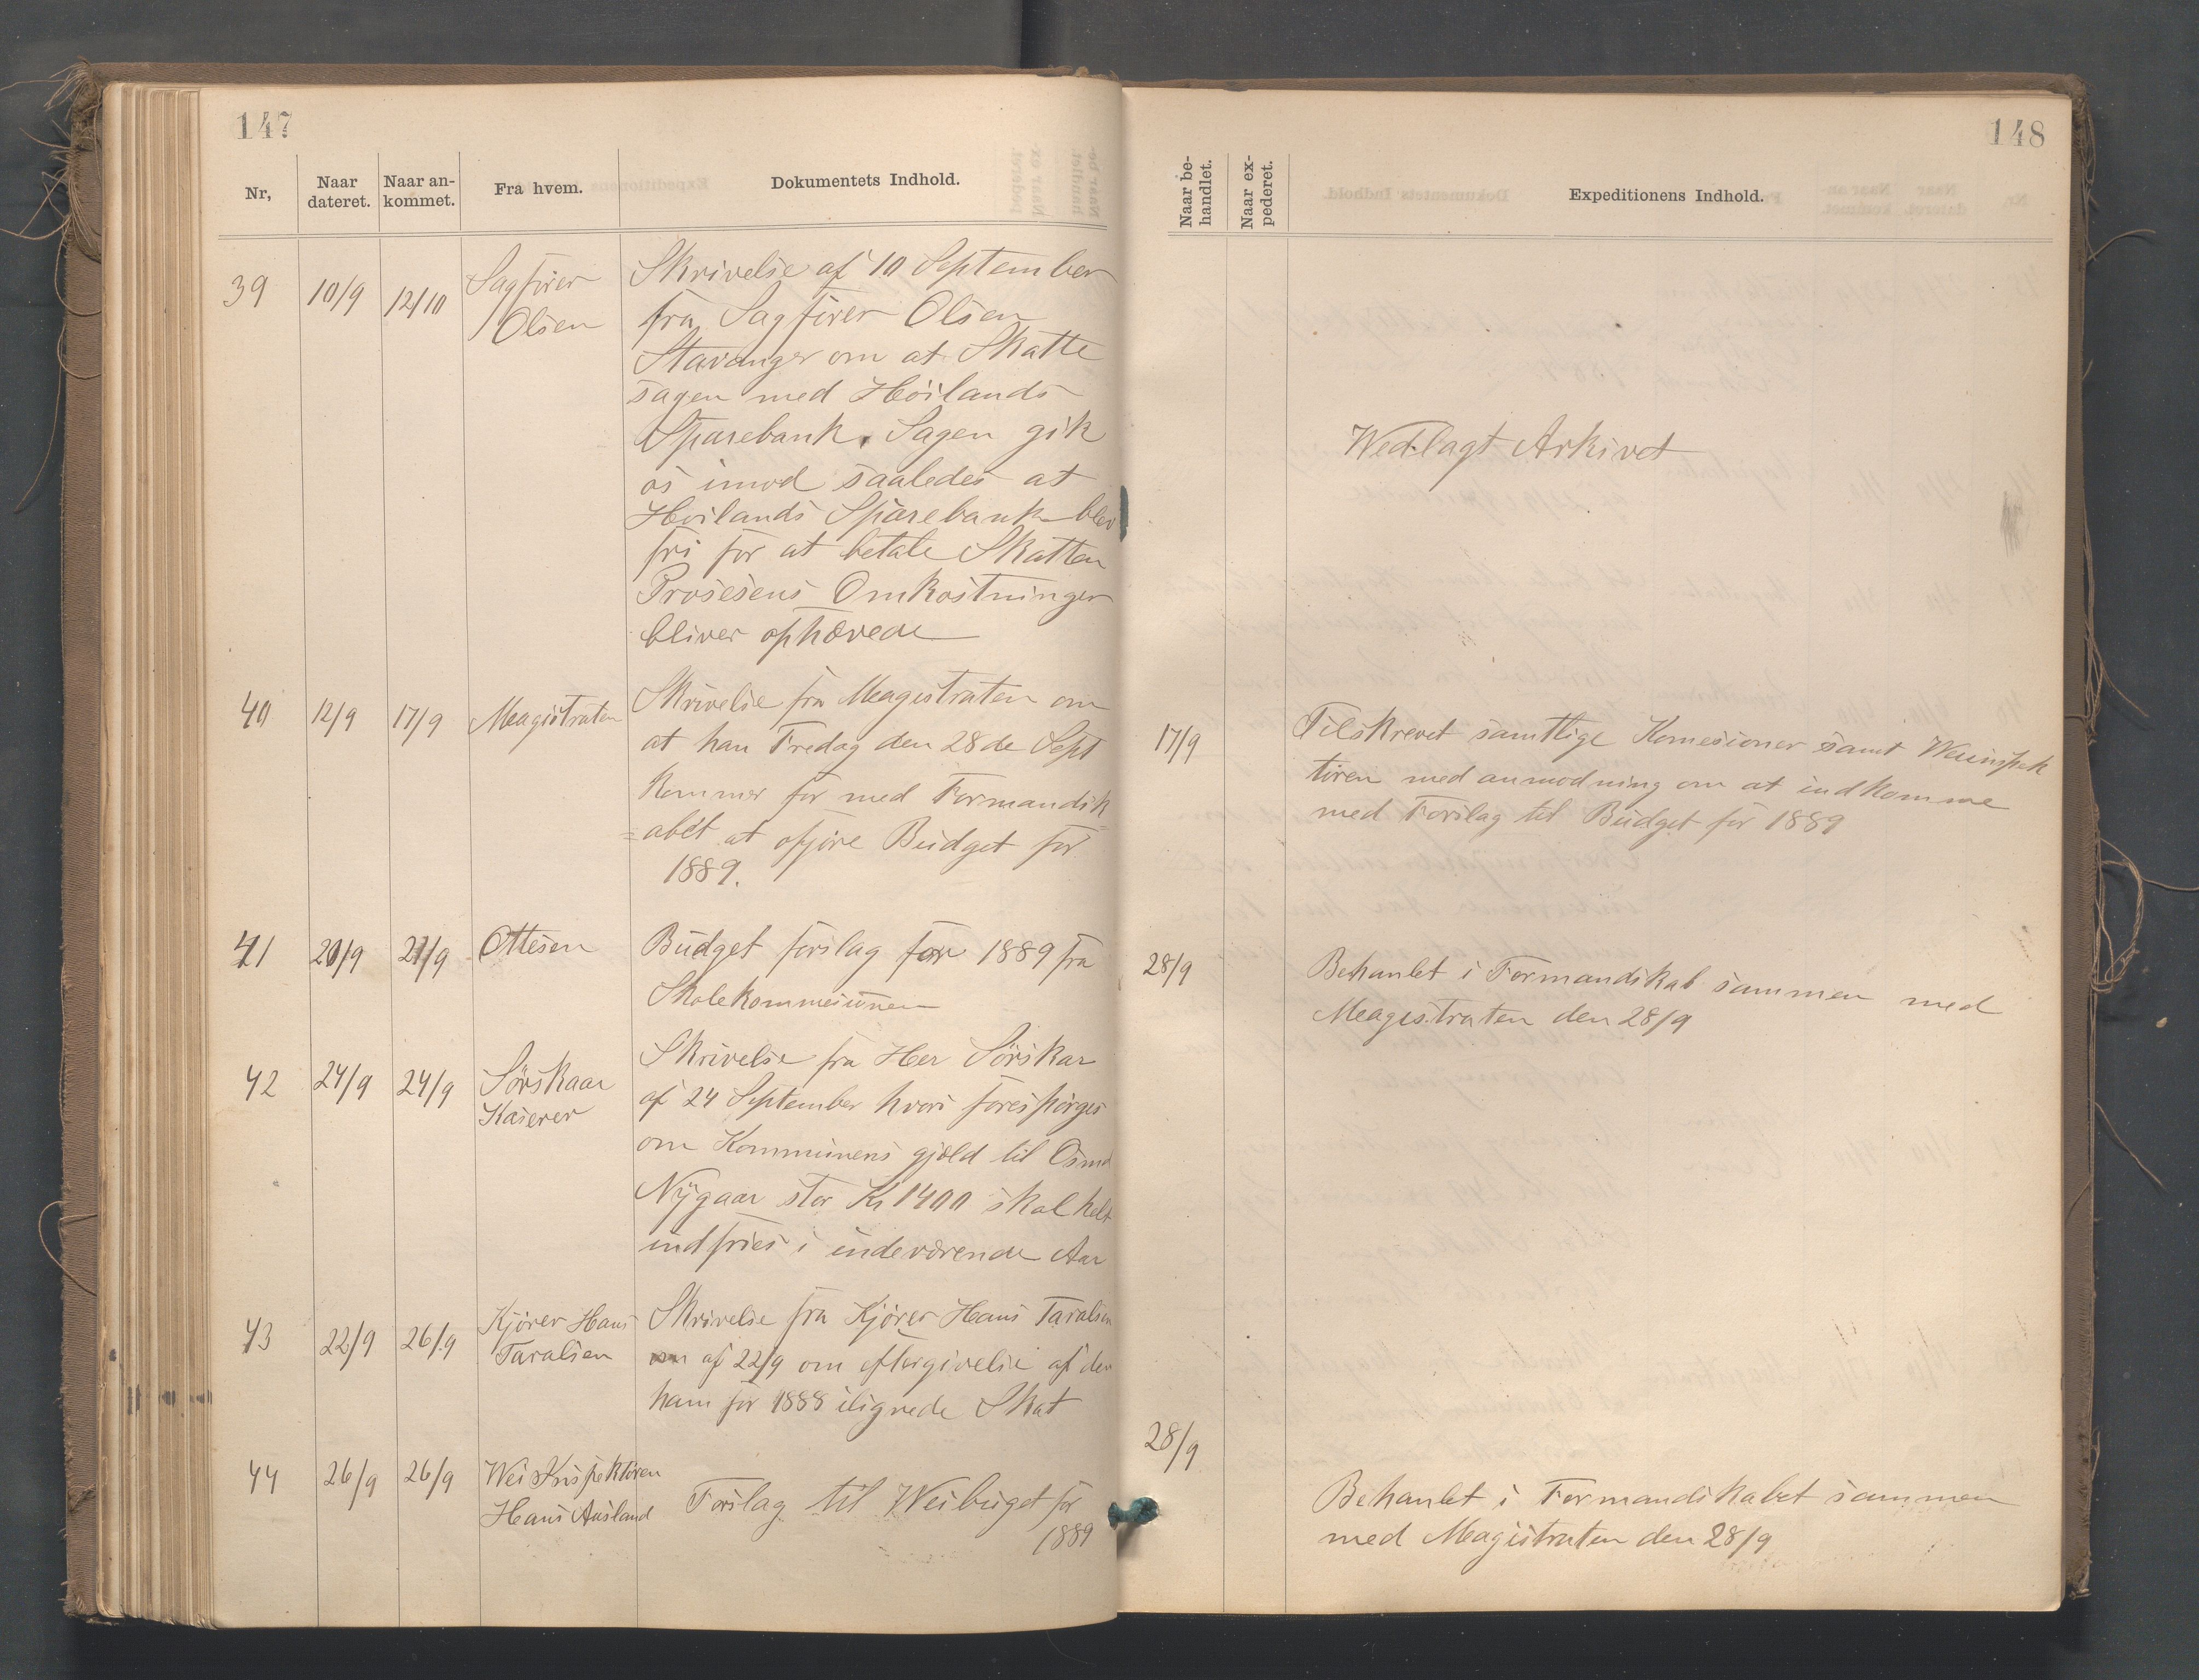 147
Nr, Naar dateret. Naar an-kommet. Fra hvem. Dokumentets Indhold.
39 10/9 12/10 Sagfører Olsen
Skrivelse af 10 September
fra Sagfører Olsen
Stavanger om at Skatte
sagen med Høilands
Sparebank. Sagen gik
os imod saaledes at
Høilands Sparebank blev
fri for at betale Skatten
Prosesens Omkostninger
bliver ophævede
40 12/9 17/9 Meagistraten
Skrivelse fra Meagistraten om
at han Fredag den 28de Sept
kommer for med Formandsk
=abet at opgjøre Budget for
1889.
41 20/9 21/9 Ottesen
Budget forslag for 1889 fra
Skolekommesionen
42 24/9 24/9 Sørskaar Kaserer
Skrivelse fra Her Sörskar
af 24 September hvori forespørges
om Kommunens gjæld til Osmd
Nygaar stor Kr 1400 skal helt
indfries i indeværende Aar
43 22/9 26/9 Kjører Hans Taralsen
Skrivelse fra Kjører Hans Taralsen
af 22/9 om eftergivelse af den
ham for 1888 ilignede Skat
44 26/9 26/9 Wei Inspektøren Hans Ausland
Forslag til Weibuget for
1889
148
Naar be-handlet. Naar ex-pederet. Expeditionens Indhold.
Wedlagt Arkivet
17/9
Tilskrevet samtlige Komesioner samt Weiinspek
tøren med anmodning om at indkomme
med Forslag til Budget for 1889
28/9
Behanlet i Formandskab sammen med
Meagistraten den 28/9
28/9
Behanlet i Formandskabet sammen
med Meagistraten den 28/9